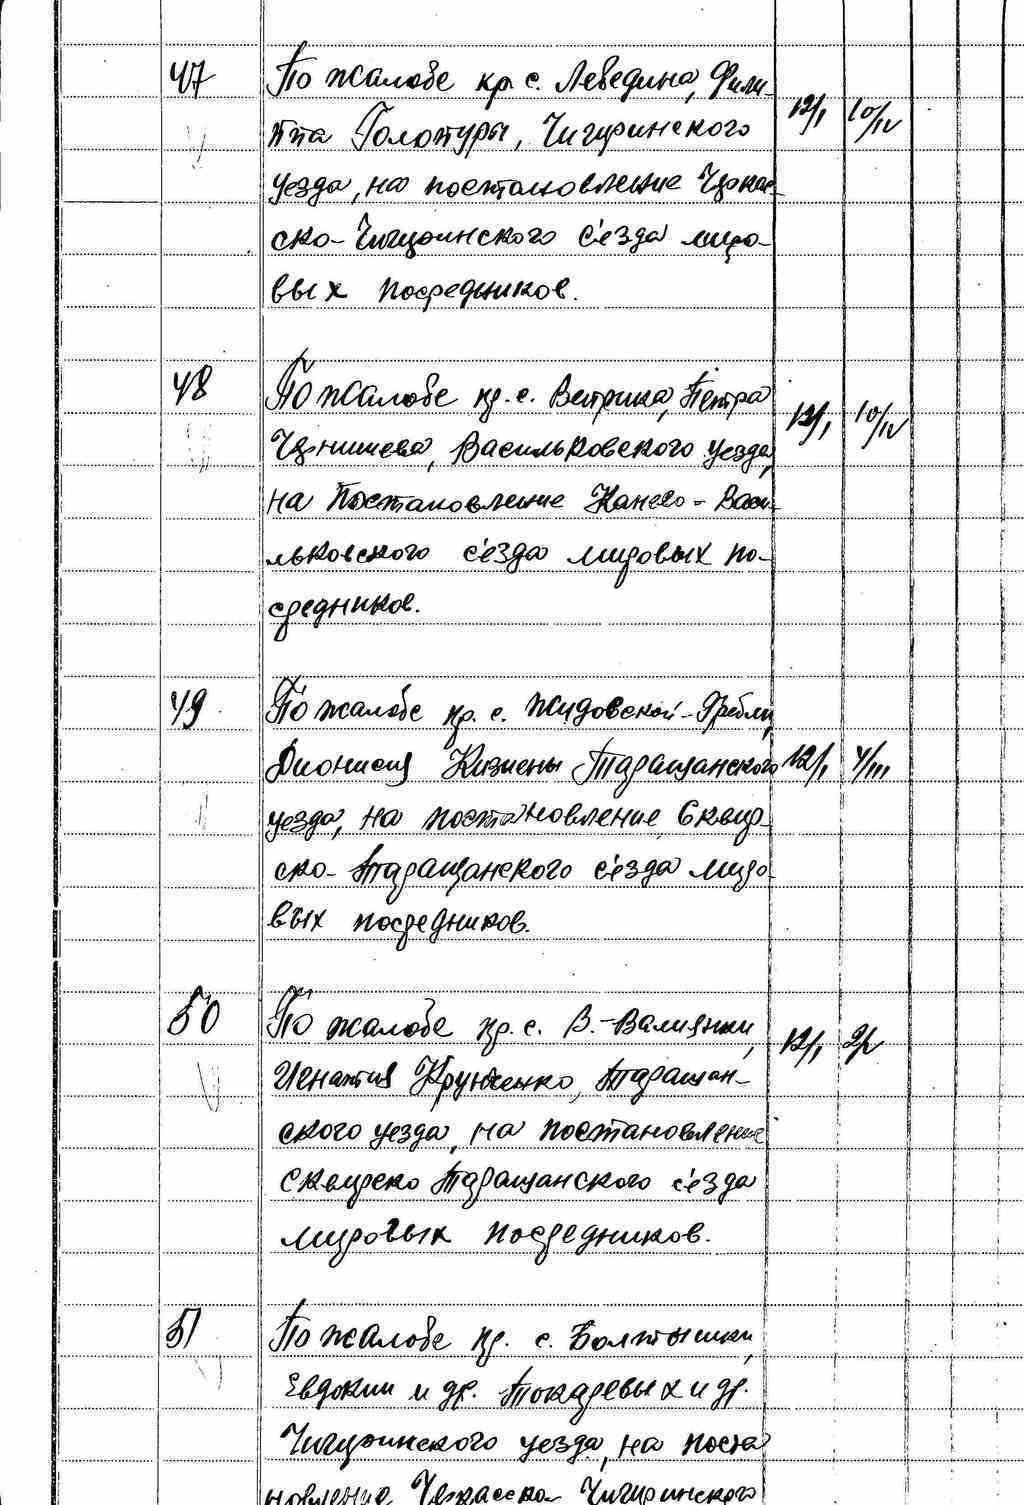 47 По жалобе кр. с. Лебедина, Фили-
ппа Голопуры, Чигиринского 12/I 10/IV
уезда, на постановление Черкас-
ско-Чигиринского с'езда миро-
вых посредников.
48 По жалобе кр. с. Ветрика, Петра
Чернишева, Васильковского уезда, 12/I 10/IV
на постановление Канево-Васи-
льковского с'езда мировых по-
средников.
49 По жалобе кр. с. Жидовской-Гребли,
Дионисия Кизиены Таращанского 12/I 4/III
уезда, на постановление Сквир-
ско-Таращанского с'езда миро-
вых посредников.
50 По жалобе кр. с. В.-Валиянки, 12/I
Игнатия, Таращан-
ского уезда, на постановление
Сквирско Таращанского с'езда
мировых посредников.
51 По жалобе кр. с. Болтышки,
Евдокии и др. Токаревых и др.
Чигиринского уезда, на поста
новление Черкасско Чигиринского